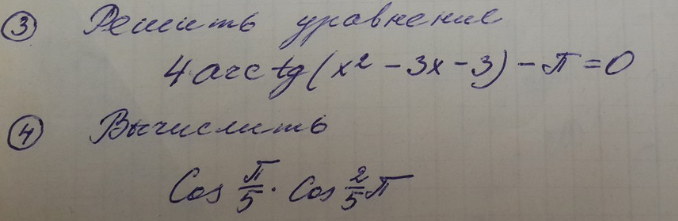 ③ Решить уравнение
4 arctg(x² - 3x - 3) - π = 0
④ Вычислить
Cos π/5 · Cos 2/5 π